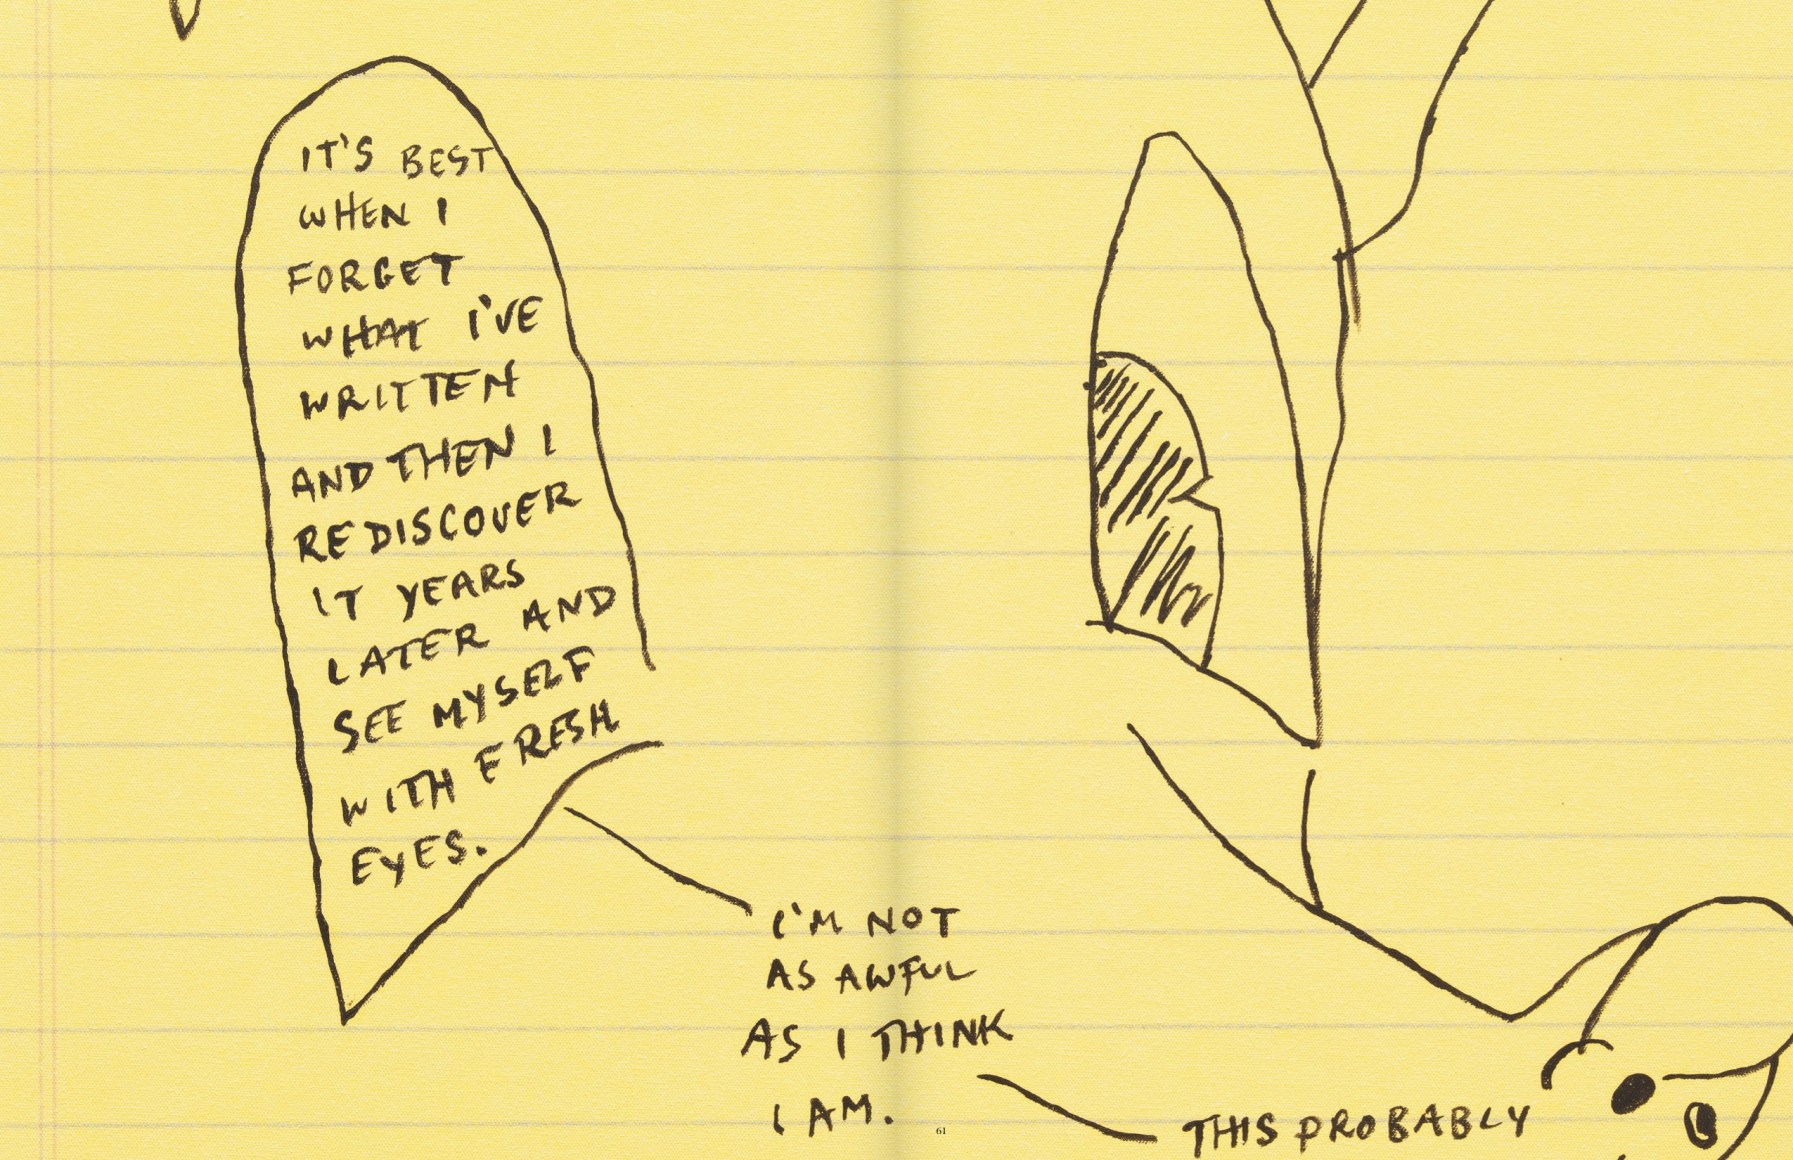 IT'S BEST
WHEN I
FORGET
WHAT I'VE
WRITTEN
AND THEN I
REDISCOVER
IT YEARS
LATER AND
SEE MYSELF
WITH FRESH
EYES.
I'M NOT
AS AWFUL
AS I THINK
I AM.
61
THIS PROBABLY